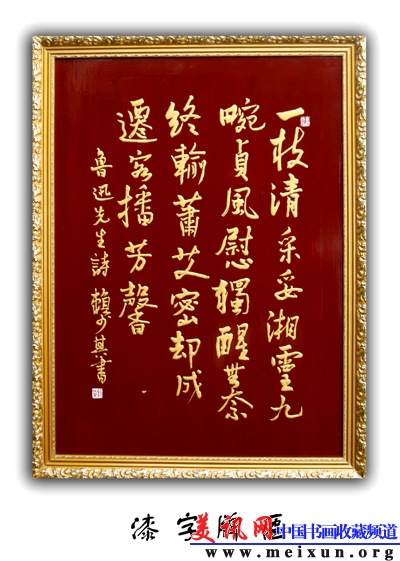 一枝清采妥湘靈九
畹貞風慰獨醒無奈
終輸蕭艾密却成
遷客播芳馨
魯迅先生詩 賴少其書
漆字牌匾
美讯网
中国书画收藏频道
www.meixun.org